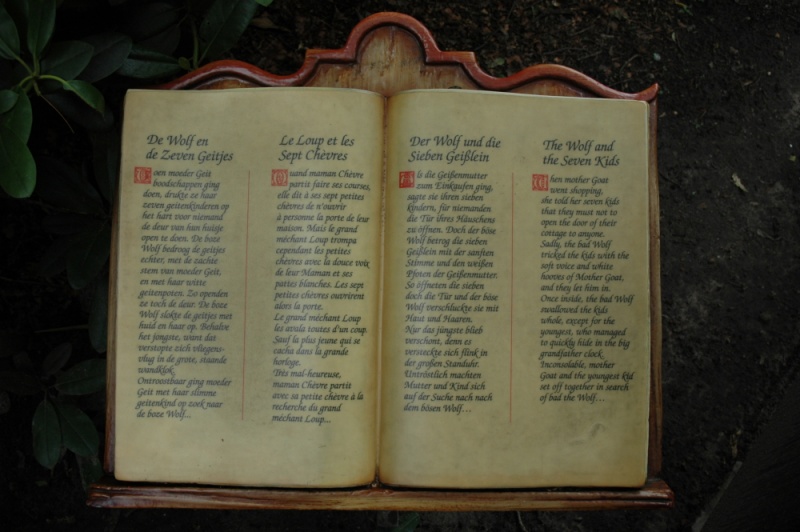 De Wolf en
de Zeven Geitjes
Toen moeder Geit
boodschappen ging
doen, drukte ze haar
zeven geitenkinderen op
het hart voor niemand
de deur van hun huisje
open te doen. De boze
Wolf bedroog de geitjes
echter, met de zachte
stem van moeder Geit,
en met haar witte
geitenpoten. Zo openden
ze toch de deur. De boze
Wolf slokte de geitjes met
huid en haar op. Behalve
het jongste, want dat
verstopte zich vliegens-
vlug in de grote, staande
wandklok.
Ontroostbaar ging moeder
Geit met haar slimme
geitenkind op zoek naar
de boze Wolf...
Le Loup et les
Sept Chèvres
Quand maman Chèvre
partit faire ses courses,
elle dit à ses sept petites
chèvres de n'ouvrir
à personne la porte de leur
maison. Mais le grand
méchant Loup trompa
cependant les petites
chèvres avec la douce voix
de leur Maman et ses
pattes blanches. Les sept
petites chèvres ouvrirent
alors la porte.
Le grand méchant Loup
les avala toutes d'un coup.
Sauf la plus jeune qui se
cacha dans la grande
horloge.
Très mal-heureuse,
maman Chèvre partit
avec sa petite chèvre à la
recherche du grand
méchant Loup...
Der Wolf und die
Sieben Geißlein
Als die Geißenmutter
zum Einkaufen ging,
sagte sie ihren sieben
kindern, für niemanden
die Tür ihres Häuschens
zu öffnen. Doch der böse
Wolf betrog die sieben
Geißlein mit der sanften
Stimme und den weißen
Pfoten der Geißenmutter.
So öffneten die sieben
doch die Tür und der böse
Wolf verschluckte sie mit
Haut und Haaren.
Nur das jüngste blieb
verschont, denn es
versteckte sich flink in
der großen Standuhr.
Untröstlich machten
Mutter und Kind sich
auf der Suche nach nach
dem bösen Wolf...
The Wolf and
the Seven Kids
When mother Goat
went shopping,
she told her seven kids
that they must not to
open the door of their
cottage to anyone.
Sadly, the bad Wolf
tricked the kids with the
soft voice and white
hooves of Mother Goat,
and they let him in.
Once inside, the bad Wolf
swallowed the kids
whole, except for the
youngest, who managed
to quickly hide in the big
grandfather clock.
Inconsolable, mother
Goat and the youngest kid
set off together in search
of bad the Wolf...